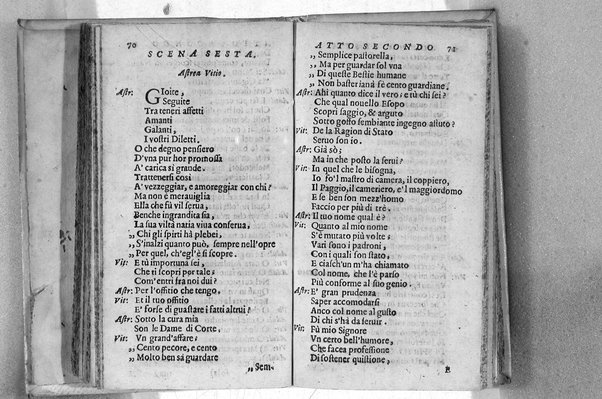 70
SCENA SESTA.
Astrea Vitio.
Astr: GIoite,
Seguite
Tra teneri affetti
Amanti
Galanti,
I vostri Diletti.
O che degno pensiero
D'vna pur hor promossa
A' carica sì grande.
Trattenersi così
A' vezzeggiar, e amoreggiar con chi?
Ma non è merauiglia
Ella che fù vil serua,
Benche ingrandita sia,
La sua viltà natia viua conserua.
„ Chi gli spirti hà plebei,
„ S'inalzi quanto può, sempre nell'opre
„ Per quel, ch'egl'è si scopre.
Vit: E tù importuna sei,
Che ti scopri por tale;
Com'entri fra noi dui?
Astr: Per l'offitio che tengo.
Vit: Et il tuo offitio
E' forse di guastare i fatti altrui?
Astr: Sotto la cura mia
Son le Dame di Corte.
Vit: Vn grand'affare;
„ Cento pecore, e cento
„ Molto ben sà guardare
„ Sem-
ATTO SECONDO 71
„ Semplice pastorella,
„ Ma per guardar sol vna
„ Di queste Bestie humane
„ Non basteriano sè cento guardiane.
Astr: Ahi quanto dice il vero; e tù chi sei?
Che qual nouello Esopo
Scopri saggio, & arguto
Sotto goffo sembiante ingegno astuto?
Vit: De la Ragion di Stato
Seruo son io.
Astr: Già sò;
Ma in che posto la serui?
Vit: In quel che le bisogna,
Io fo'l mastro di camera, il coppiero,
Il Paggio, il cameriero, e'l maggiordomo
E se ben son mezz'homo
Faccio per più di trè.
Astr: Il tuo nome qual è?
Vit: Quanto al mio nome
S'è mutato più volte;
Vari sono i padroni,
Con i quali son stato,
E ciasch'un m'ha chiamato
Col nome, che l'è parso
Più conforme al suo genio.
Astr: E' gran prudenza
Saper accomodarsi
Anco col nome al gusto
Di chi s'hà da seruir.
Vit: Fù mio Signore
Vn certo bell'humore,
Che facea professione
Di sostener quistione,